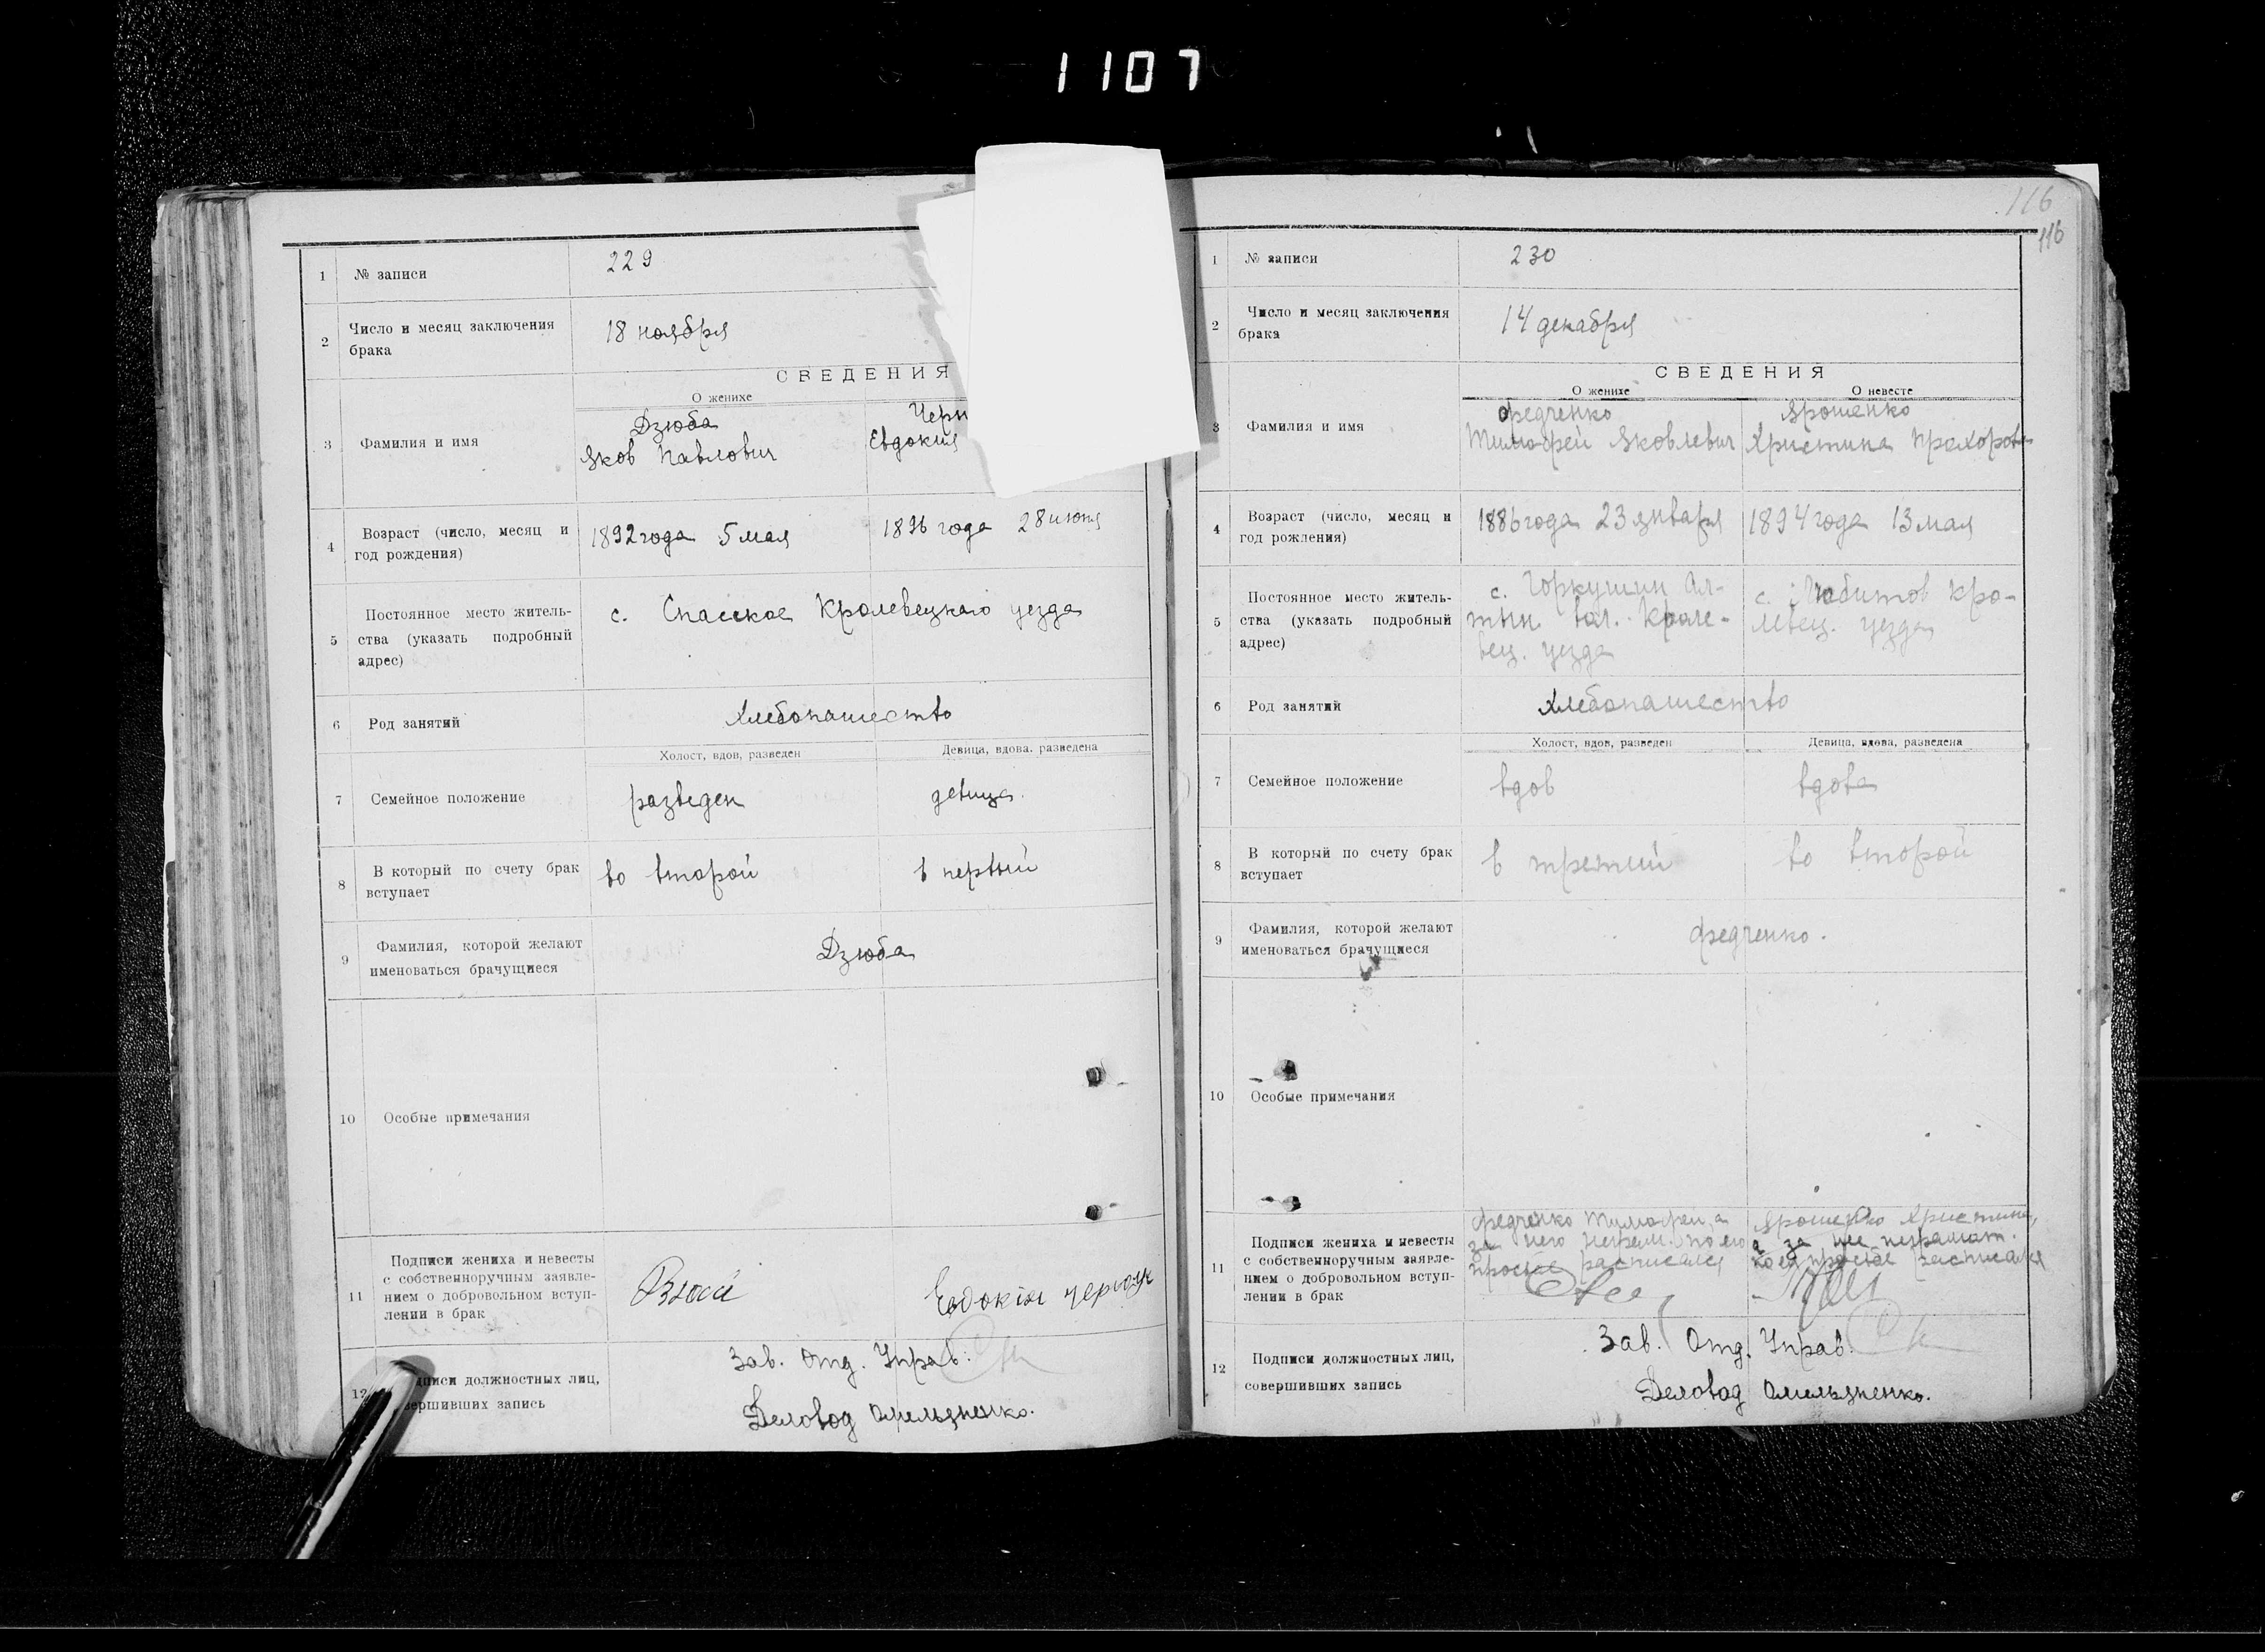 1107
1 № записи 229
2 Число и месяц заключения
брака
18 ноября
СВЕДЕНИЯ
О женихе
3 Фамилия и имя
Дзюба
Яков Павлович
Черн
Евдокия
4 Возраст (число, месяц и
год рождения)
1892 года 5 мая
1896 года 28 июня
5 Постоянное место житель-
ства (указать подробный
адрес)
с. Спасское Кролевецкаго уезда
6 Род занятий
Хлебопашество
Холост, вдов, разведен
Девица, вдова. разведена
7 Семейное положение
разведен
девица.
8 В который по счету брак
вступает
во второй
в первый
9 Фамилия, которой желают
именоваться брачущиеся
Дзюба
10 Особые примечания
11 Подписи жениха и невесты
с собственноручным заявле-
нием о добровольном вступ-
лении в брак
Евдокія
12
дписи должностных лиц,
вершивших запись
Зав. Отд. Управ.
Деловод Омельяненко.
116
116
1 № записи 230
2 Число и месяц заключения
брака
14 декабря
СВЕДЕНИЯ
О женихе
О невесте
3 Фамилия и имя
Федченко
Тимофей Яковлевич
Ярошенко
Христина Прохоровн
4 Возраст (число, месяц и
год рождения)
1886 года 23 января
1894 года 13 мая
5 Постоянное место житель-
ства (указать подробный
адрес)
с. Горкушин Ал-
тын вол. Кроле-
вец. уезда
с. Любитов Кро-
левец. уезда
6 Род занятий
Хлебопашество
Холост, вдов, разведен
Девица, вдова, разведена
7 Семейное положение
вдов
вдова
8 В который по счету брак
вступает
в третий
во второй
9 Фамилия, которой желают
именоваться брачущиеся
Федченко.
10 Особые примечания
11 Подписи жениха и невесты
с собственноручным заявле-
нием о добровольном вступ-
лении в брак
Федченко Тимофей, а
за него неграм. по его
просьбе расписался
Ярошенко Христина,
а за нее неграмот.
по ея просьбе расписался
12 Подписи должностных лиц,
совершивших запись
Зав. Отд. Управ.
Деловод Омельяненко.